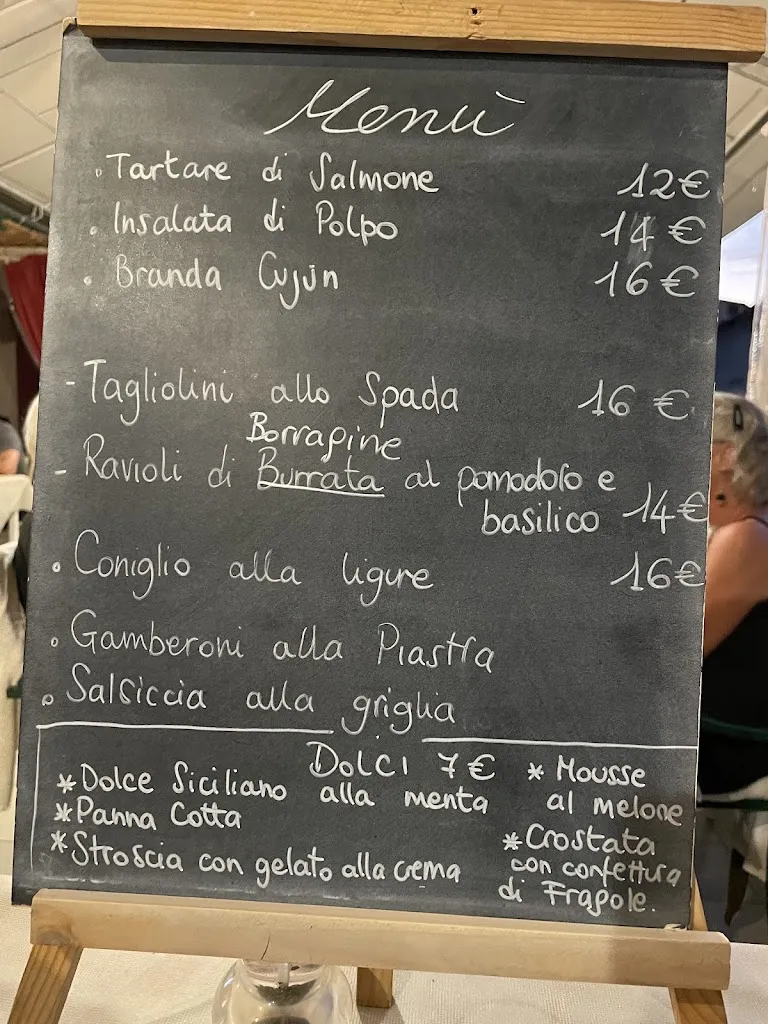 Menù
Tartare di Salmone 12€
Insalata di Polpo 14€
Branda Cujun 16€
- Tagliolini allo Spada 16€
Borragine
- Ravioli di Burrata al pomodoro e
basilico 14€
Coniglio alla ligure 16€
Gamberoni alla Piastra
Salsiccia alla griglia
DOLCI 7€
* Dolce Siciliano alla menta
* Panna Cotta
* Stroscia con gelato alla crema
* Mousse
al melone
* Crostata
con confettura
di Fragole.